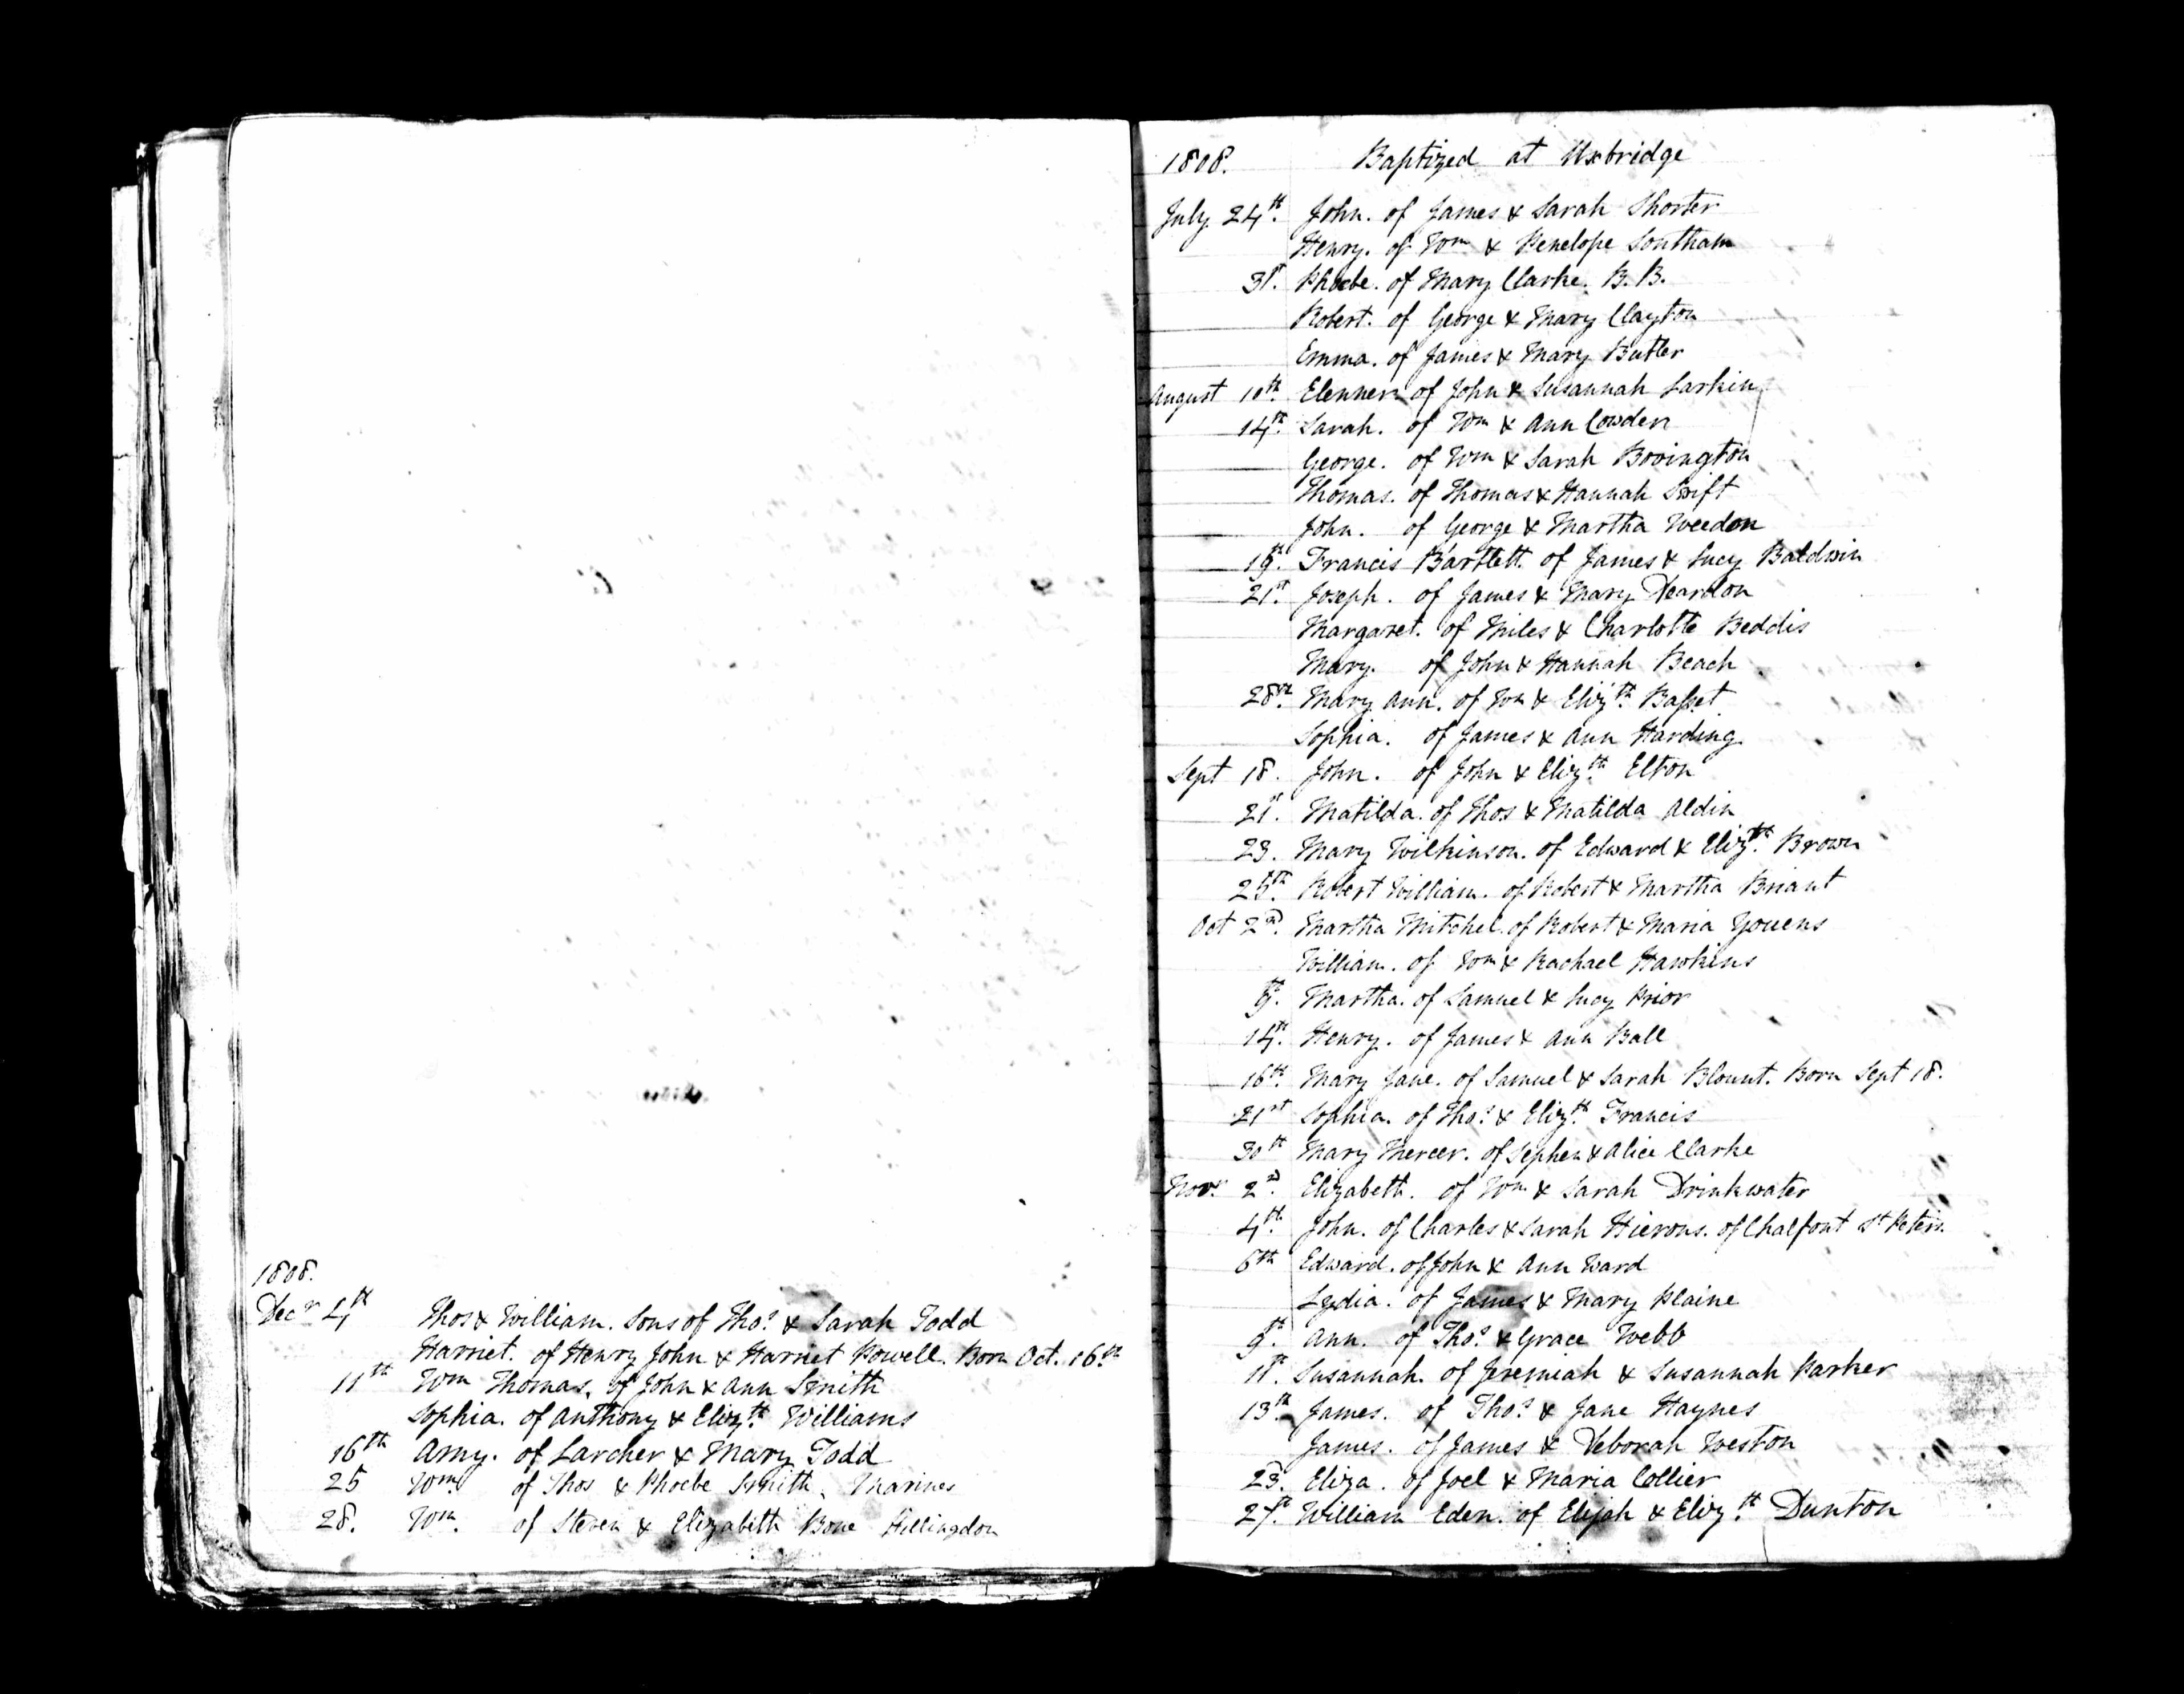 1808.
Decr 4th Thos & William. Sons of Thos & Sarah Todd
Harriet. of Henry John & Harriet Powell. Born Oct. 16th
11th Wm Thomas. of John & Ann Smith
Sophia. of Anthony & Elizth Williams
16th Amy. of Larcher & Mary Todd
25 Wm of Thos & Phoebe Smith, Marines
28. Wm. of Steven & Elizabeth Bone Hillingdon
1808. Baptized at Uxbridge
July 24th. John. of James & Sarah Shorter
Henry. of Wm & Penelope Southam
31st. Phoebe. of Mary Clarke. B. B.
Robert. of George & Mary Clayton
Emma. of James & Mary Butler
August 10th. Elenner of John & Susannah Larkin
14th. Sarah. of Wm & Ann Cowden
George. of Wm & Sarah Bovington
Thomas. of Thomas & Hannah Swift
John. of George & Martha Weedon
19th. Francis Bartlett. of James & Lucy Baldwin
21st. Joseph. of James & Mary Deardon
Margaret. of Miles & Charlotte Beddis
Mary. of John & Hannah Beach
28th. Mary Ann. of Wm & Elizth. Basset
Sophia. of James & Ann Harding
Sept 18. John. of John & Elizth. Elton
21st. Matilda. of Thos & Matilda Aldin
23. Mary Wilkinson. of Edward & Elizth. Brown
25th. Robert William. of Robert & Martha Briant
Oct 2nd. Martha Mitchel. of Robert & Maria Youens
William. of Wm & Rachael Hawkins
9th. Martha. of Samuel & Lucy Prior
14th. Henry. of James & Ann Ball
16th. Mary Jane. of Samuel & Sarah Blount. Born Sept 18.
21st Sophia. of Thos. & Elizth. Francis
30th Mary Mercer. of Sephen & Alice Clarke
Novr. 2nd. Elizabeth. of Wm & Sarah Drinkwater
4th. John. of Charles & Sarah Hierons. of Chalfont St Peters.
6th Edward. of John & Ann Ward
Lydia. of James & Mary Plaine
9th. Ann. of Thos. & Grace Webb
11th. Susannah. of Jeremiah & Susannah Parker
13th. James. of Thos. & Jane Haynes
James. of James & Deborah Weston
23. Eliza. of Joel & Maria Collier
27th. William Eden. of Elijah & Elizth. Dunton